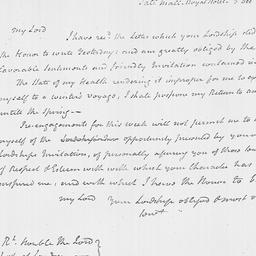 Pall Mall. Royal Hotel. 3
My Lord
I have recd. the Letter which your Lordship did
the Honor to write Yesterday: and am greatly obliged by the
favorable Sentiments and friendly Invitation contained in
The State of my Health rendering it improper for me to ex
myself to a winter's voyage, I shall postpone my Return to
untill the Spring —
Pre-engagements for this week will not permit me to
myself of the opportunity presented by your
Lordships Invitation, of personally assuring you of those
of Respect & Esteem with which your Character has
inspired me; and with which I have the Honor to
my Lord your Lordships obliged & most
Servt
Rt. Honble the Lord